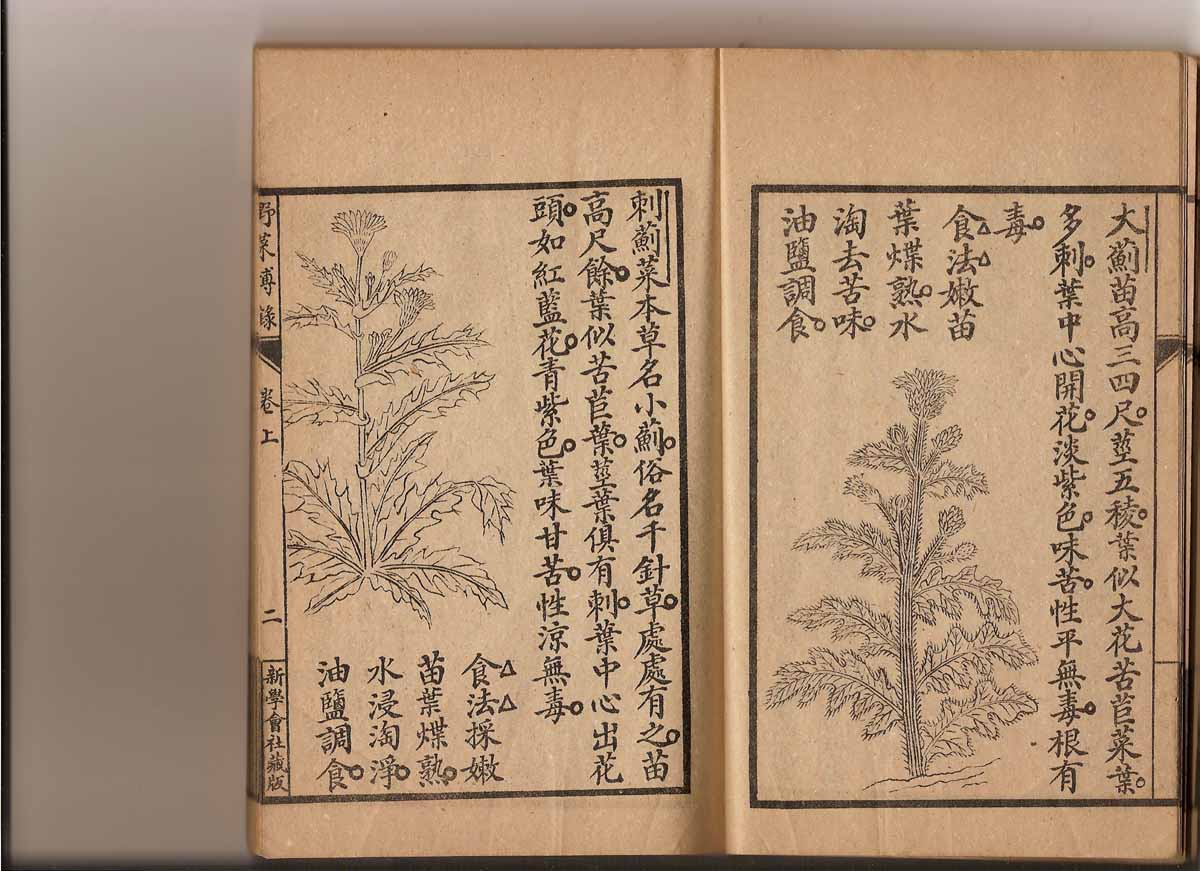 大薊苗高三四尺。莖五稜。葉似大花苦苣菜葉。
多刺。葉中心開花。淡紫色。味苦。性平無毒。根有
毒。
食法嫩苗
葉煠熟。水
淘去苦味。
油鹽調食。
刺薊菜本草名小薊。俗名千針草。處處有之。苗
高尺餘。葉似苦苣葉。莖葉俱有刺。葉中心出花
頭。如紅藍花。青紫色。葉味甘苦。性涼無毒。
食法採嫩
苗葉煠熟。
水浸淘淨。
油鹽調食。
野菜博錄
卷上
二
新學會社藏版